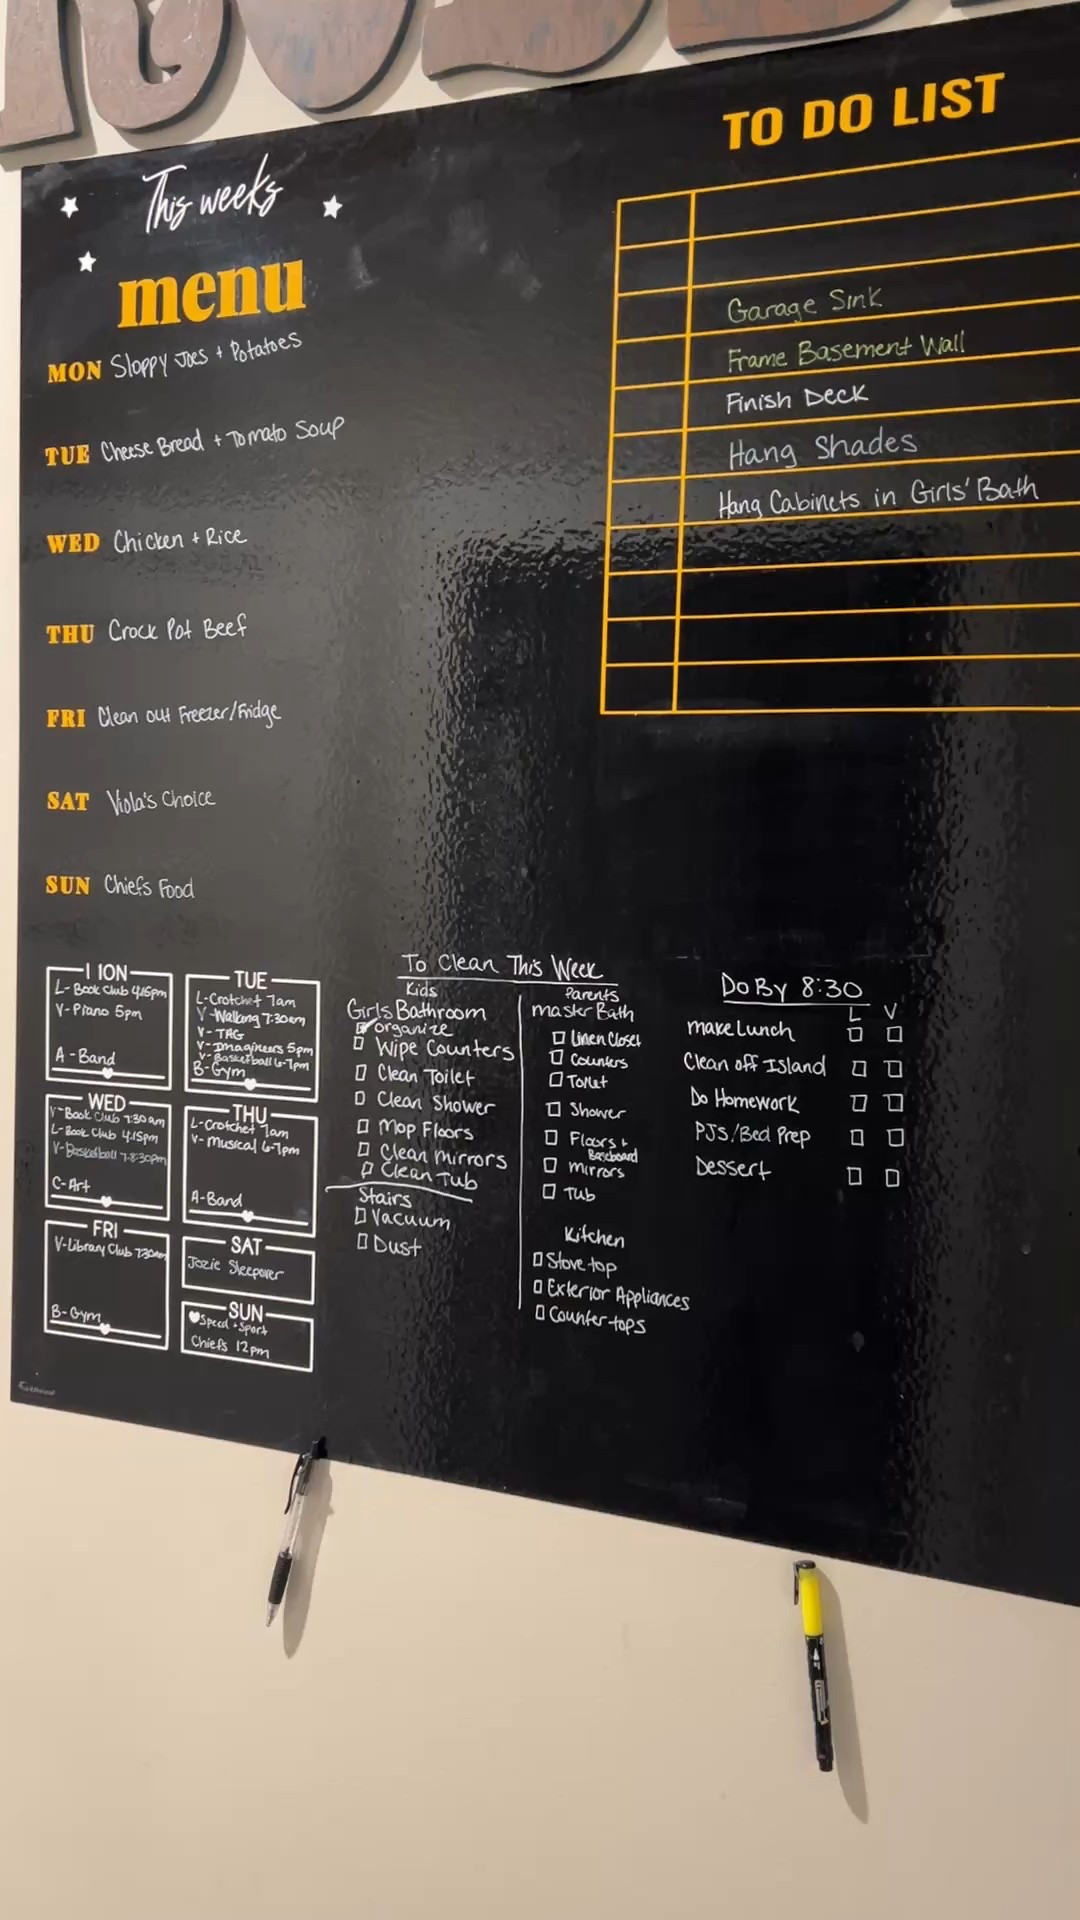 This weeks
menu
MON Sloppy Joes + Potatoes
TUE Cheese Bread + Tomato Soup
WED Chicken + Rice
THU Crock Pot Beef
FRI Clean out Freezer/Fridge
SAT Viola's Choice
SUN Chiefs Food
TO DO LIST
Garage Sink
Frame Basement Wall
Finish Deck
Hang Shades
Hang Cabinets in Girls' Bath
L- Book Club 4:15pm
V- Piano 5pm
A - Band
TUE
L-Crotchet 7am
V-Walking 7:30am
V- TAG
V- Imagineers 5pm
V- Basketball 6-7pm
B-Gym
WED
V-Book Club 7:30am
L-Book Club 4:15pm
V-Basketball 7-8:30pm
C-Art
THU
L-Crotchet 7am
V- Musical 6-7pm
A-Band
FRI
V-Library Club 7:30am
B-Gym
SAT
Jozie Sleepover
SUN
Speed + Sport
Chiefs 12pm
To Clean This Week
Kids
Girls Bathroom
organize
Wipe Counters
Clean Toilet
Clean Shower
Mop Floors
Clean Mirrors
Clean Tub
Stairs
Vacuum
Dust
Parents
Master Bath
Linen Closet
Counters
Toilet
Shower
Floors +
Baseboard
Mirrors
Tub
Kitchen
Stovetop
Exterior Appliances
Countertops
Do By 8:30
L V
Make Lunch
Clean off Island
Do Homework
PJs/Bed Prep
Dessert